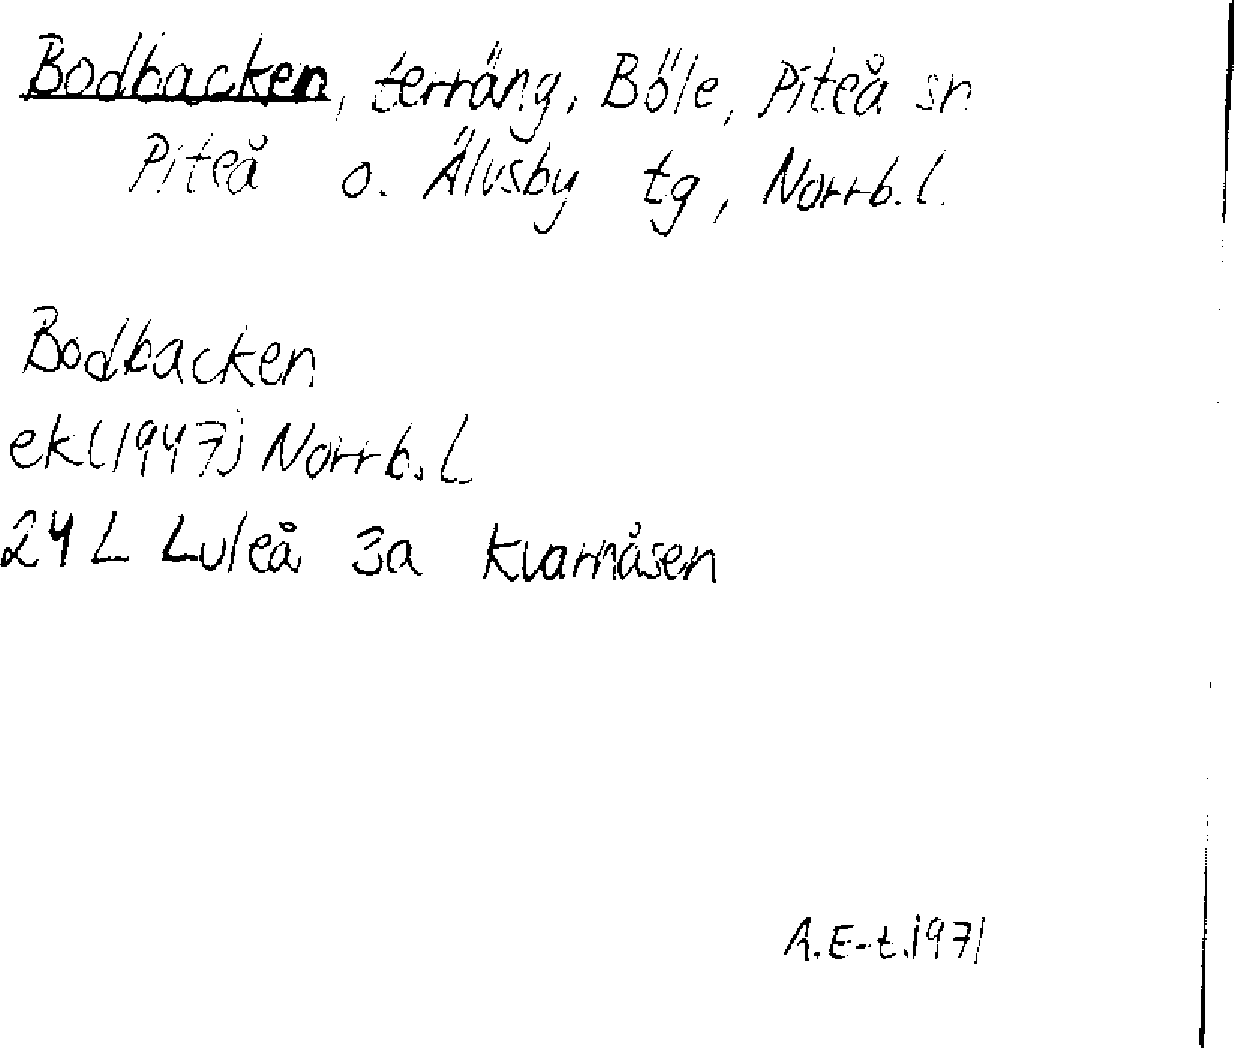 Bodbacken, terräng, Böle, Piteå sn
Piteå o. Älvsby tg, Norrb. l.
Bodbacken
ek (1947) Norrb. L
24 L Luleå 3a Kvarnåsen
A. E-t. 1971